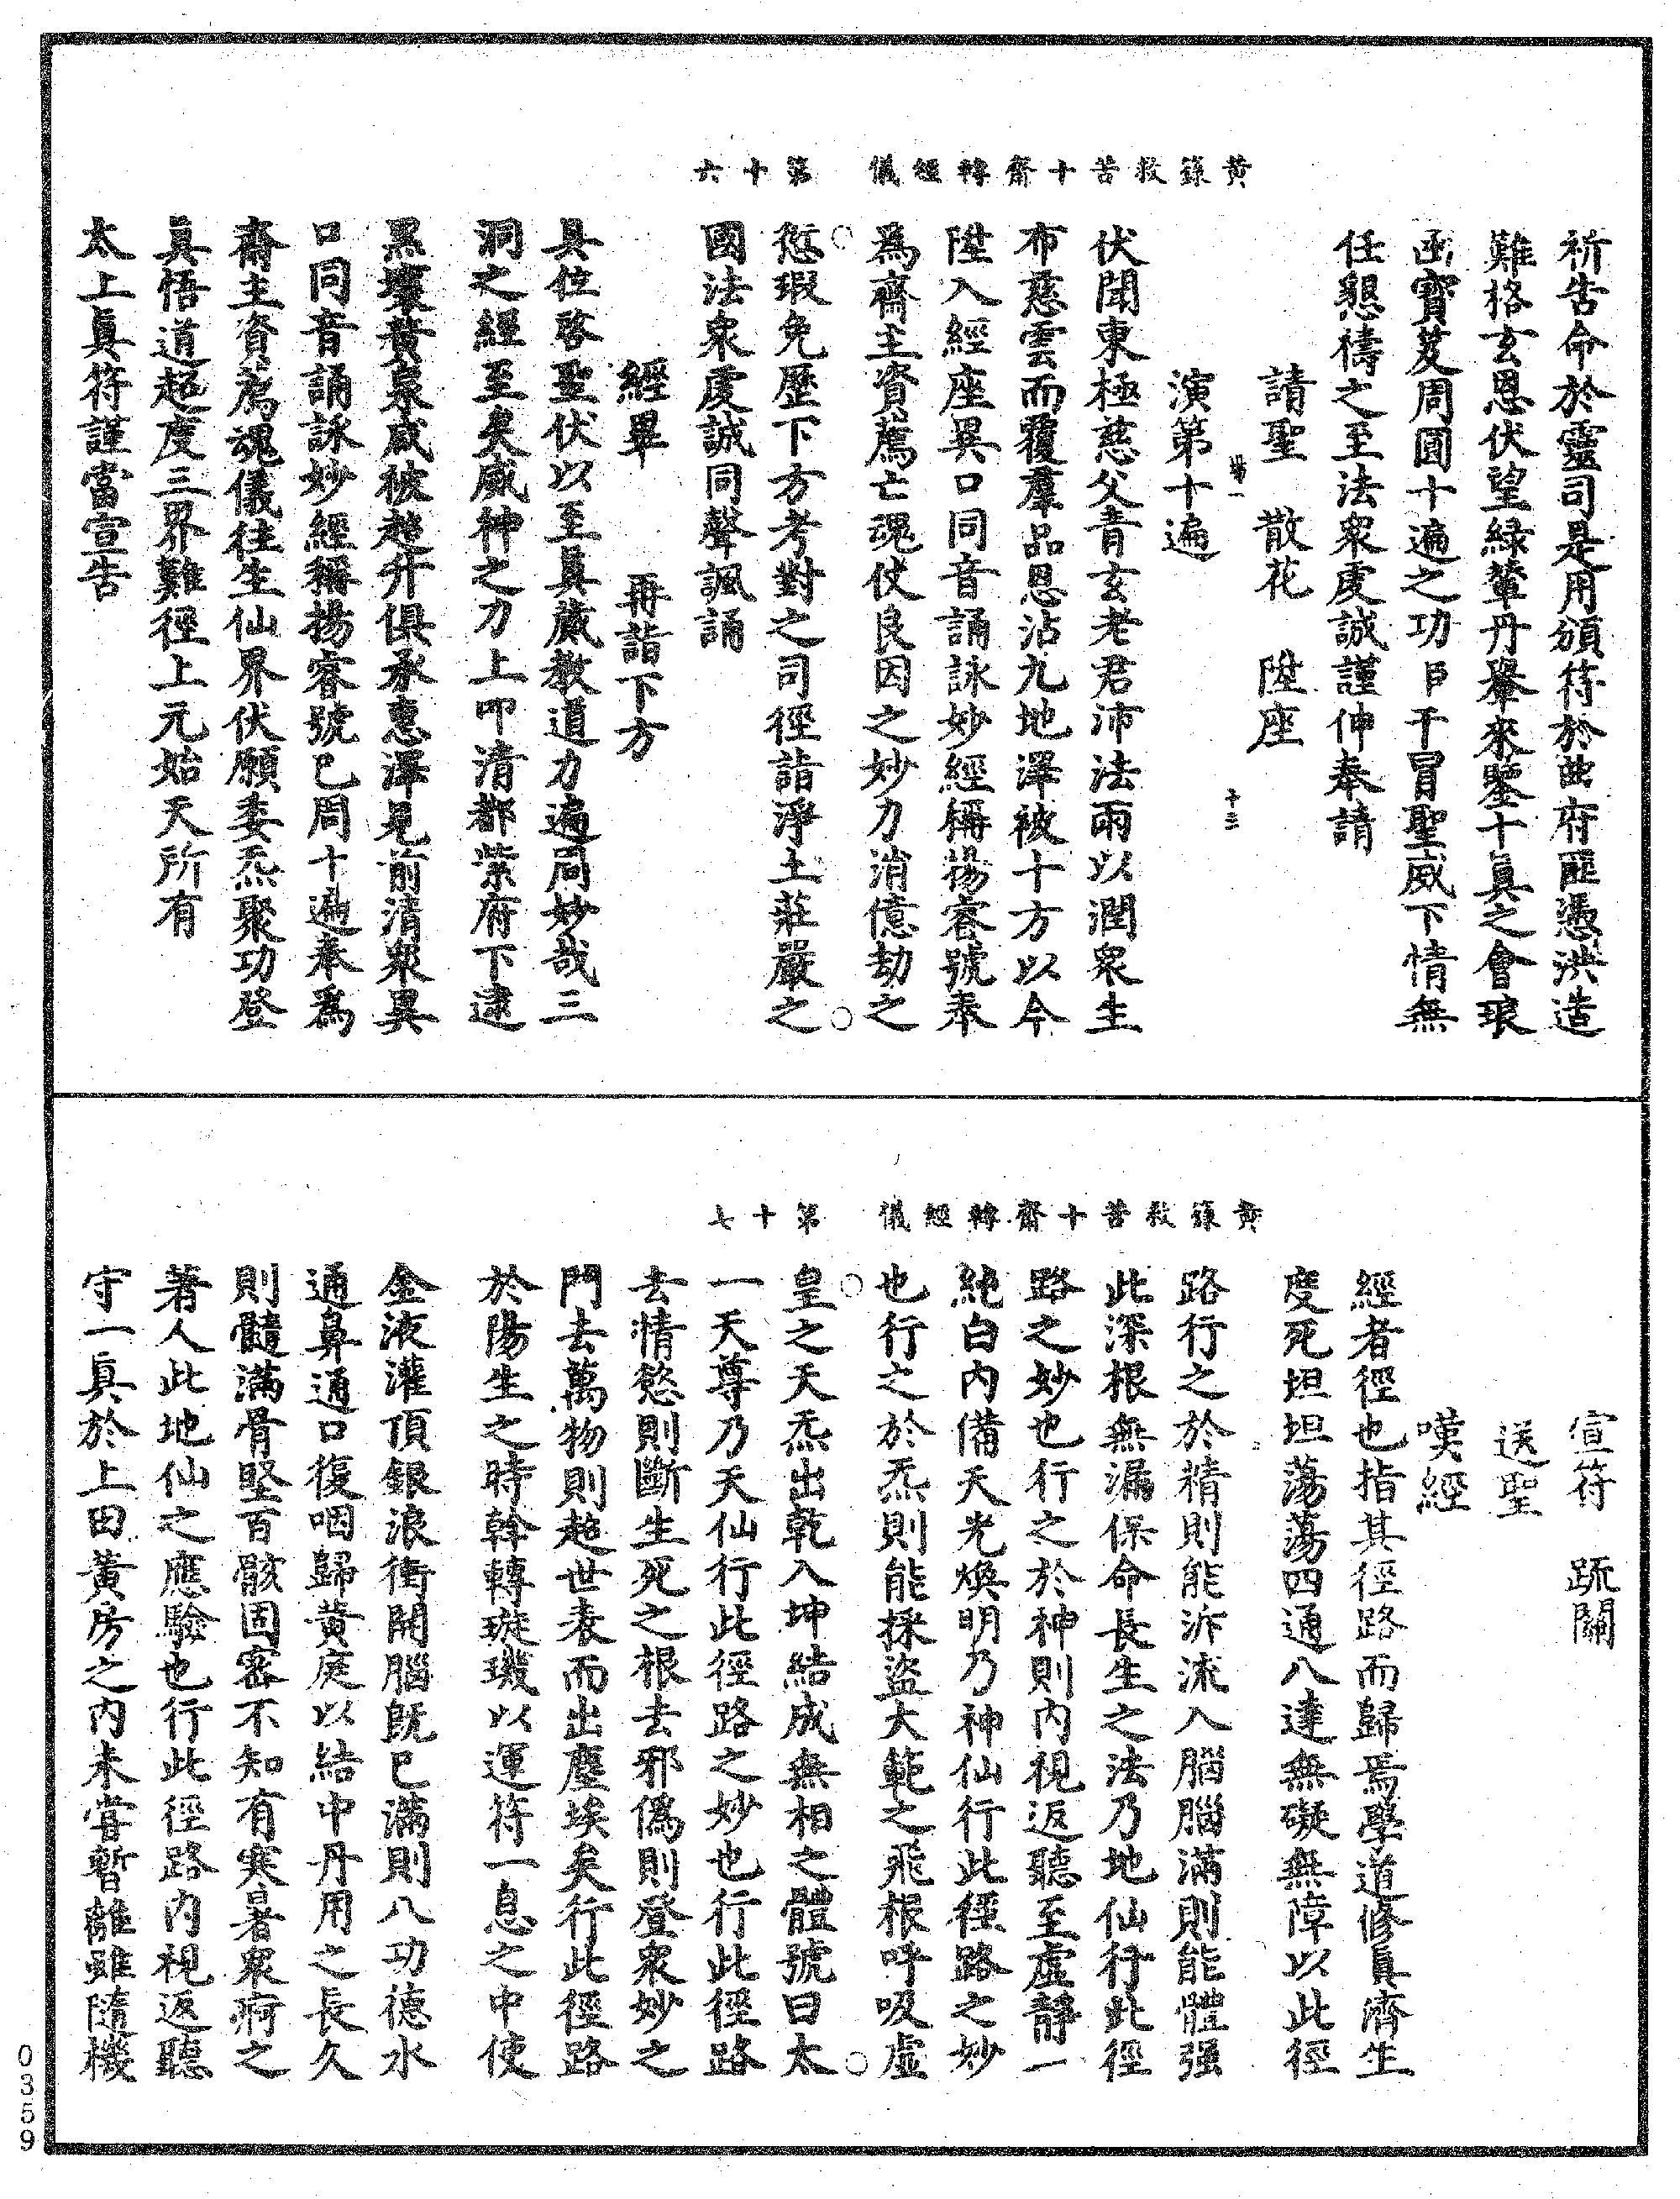 黃籙救苦十齋轉經儀　第十六
祈告命於靈司是用頒符於曲府匪憑洪造
難格玄恩伏望緑輦丹轝來鑒十眞之會琅
函寶芨周圓十遍之功㠯干冒聖威下情無
任懇禱之至法衆虔誠謹伸奉請
請聖　散花　陞座
演第十遍
伏聞東極慈父青玄老君沛法雨以潤衆生
布慈雲而覆羣品恩沾九地澤被十方以今
陞入經座異口同音誦詠妙經稱揚睿號奉
為齋主資薦亡魂仗良因之妙力消億劫之
愆瑕免歷下方考對之司徑詣淨土莊嚴之
國法衆虔誠同聲諷誦
經畢　　再詣下方
具位啓聖伏以至眞蕆教道力遍周妙哉三
洞之經至矣威神之力上叩清都紫府下逮
黑壤黃泉咸被超升俱承惠澤見前清衆異
口同音誦詠妙經稱揚睿號已周十遍奉爲
齋主資薦魂儀往生仙界伏願委炁聚功登
眞悟道超度三界難徑上元始天所有
太上眞符謹當宣告
黃籙救苦十齋轉經儀　第十七
宣符　疏關
送聖
嘆經
經者徑也指其徑路而歸焉學道修眞濟生
度死坦坦蕩蕩四通八達無礙無障以此徑
路行之於精則能泝流入腦腦滿則能體强
此深根無漏保命長生之法乃地仙行此徑
路之妙也行之於神則內視返聽至虛靜一
純白內備天光煥明乃神仙行此徑路之妙
也行之於炁則能採盜大範之飛根呼吸虛
皇之天炁出乾入坤結成無相之體號曰太
一天尊乃天仙行此徑路之妙也行此徑路
去情慾則斷生死之根去邪僞則登衆妙之
門去萬物則超世表而出塵埃矣行此徑路
於陽生之時斡轉璇璣以運符一息之中使
金液灌頂銀浪衝開腦旣已滿則八功德水
通鼻通口復咽歸黃庭以結中丹用之長久
則髓滿骨堅百骸固密不知有寒暑衆疴之
著人此地仙之應驗也行此徑路內視返聽
守一眞於上田黃房之內未嘗暫離雖隨機
0359